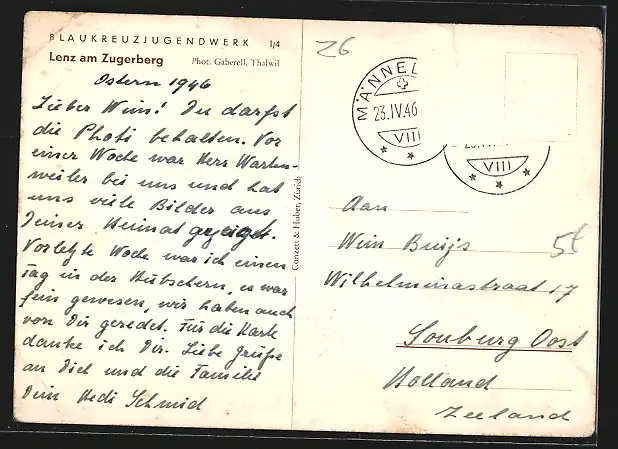 BLAUKREUZJUGENDWERK I/4
Lenz am Zugerberg Phot. Gaberell, Thalwil
Ostern 1946
Lieber Wim! Du darfst
die Photi behalten. Vor
einer Woche war Herr Warten-
weiler bei uns und hat
uns viele Bilder aus
Deiner Heimat gezeigt.
Vorletzte Woche war ich einen
Tag in der Hübschern, es war
fein gewesen, wir haben auch
von Dir geredet. Für die Karte
danke ich Dir. Liebe Grüße
an Dich und die Familie
Dein Hedi Schmid
Conzett & Huber, Zürich
Z6
MÄNNED
23.IV.46
VIII
23.IV.46
VIII
Aan
Wim Buijs
5t
Wilhelminastraat 17
Souburg Oost
Holland
Zeeland